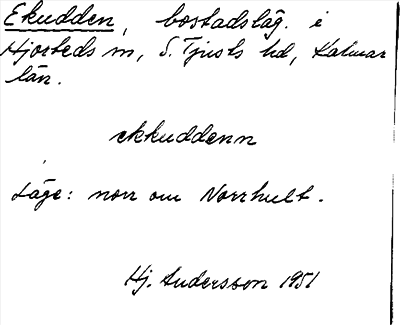 Ekudden, bostadsläg. i
Hjorteds sn, S. Tjusts hd, Kalmar
län.
ekkuddenn
Läge: norr om Norrhult.
Hj. Andersson 1951